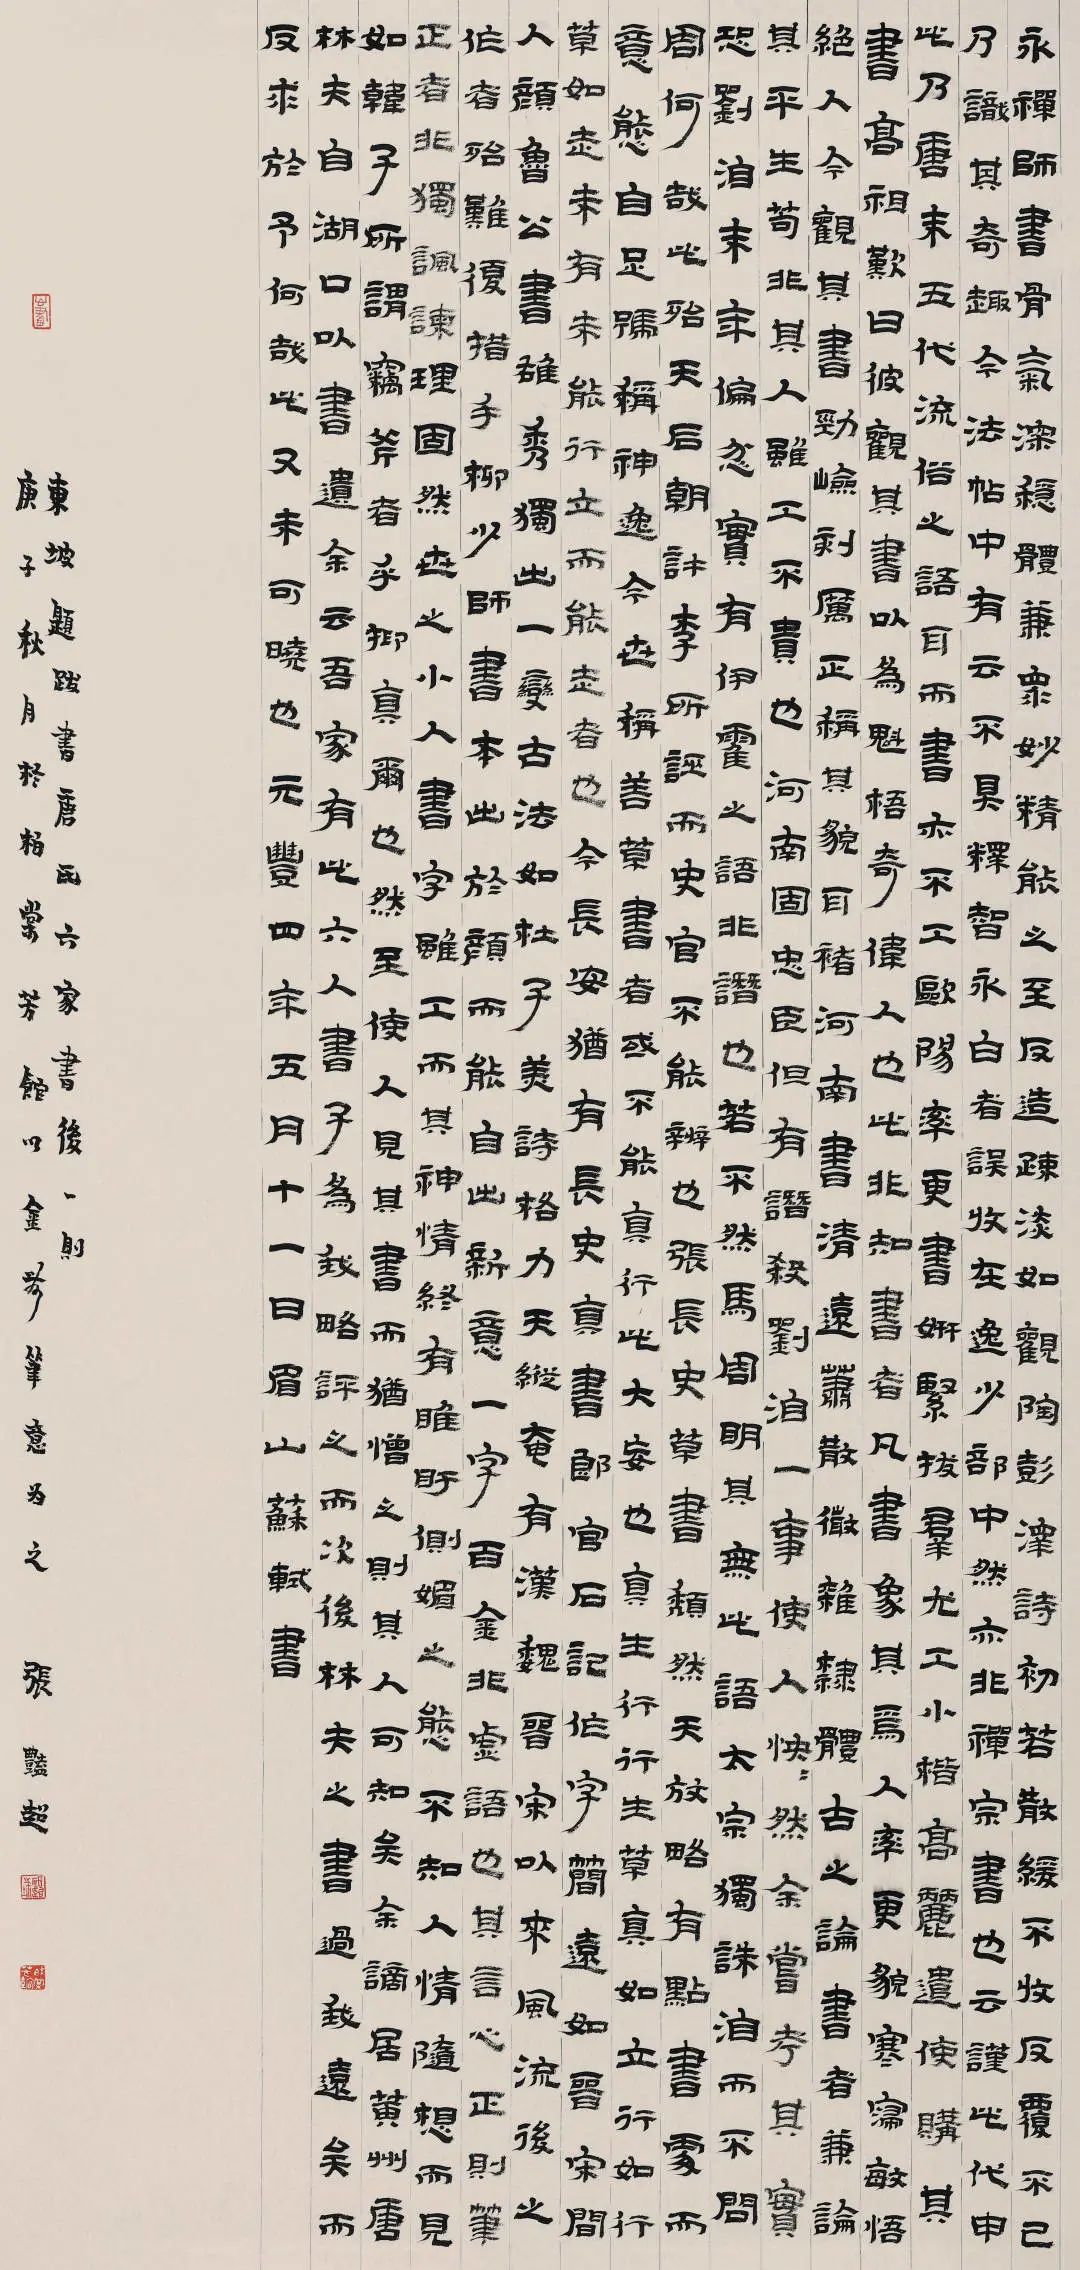 永禪師書骨氣深穩體兼眾妙精能之至反造疎淡如觀陶彭澤詩初若散緩不收反覆不已
乃識其奇趣今法帖中有云不具釋智永白者誤收在逸少部中然亦非禪宗書也云謹此代申
此乃唐末五代流俗之語耳而書亦不工歐陽率更書妍緊拔羣尤工小楷高麗遣使購其
書高祖歎曰彼觀其書以為魁梧奇偉人也此非知書者凡書象其爲人率更貌寒寢敏悟
絕人今觀其書勁嶮刻厲正稱其貌耳褚河南書清遠蕭散微雜隸體古之論書者兼論
其平生苟非其人雖工不貴也河南固忠臣但有譖殺劉洎一事使人怏怏然余嘗考其實
恐劉洎末年偏忿實有伊霍之語非譖也若不然馬周明其無此語太宗獨誅洎而不問
周何哉此殆天后朝許李所誣而史官不能辨也張長史草書頹然天放略有點書處而
意態自足號稱神逸今世稱善草書者或不能真行此大妄也真生行行生草真如立行如行
草如走未有未能行立而能走者也今長安猶有長史真書郎官石記作字簡遠如晉宋間
人顏魯公書雄秀獨出一變古法如杜子美詩格力天縱奄有漢魏晉宋以來風流後之
作者殆難復措手柳少師書本出於顏而能自出新意一字百金非虛語也其言心正則筆
正者非獨諷諫理固然世之小人書字雖工而其神情終有睢盱側媚之態不知人情隨想而見
如韓子所謂竊斧者乎抑真爾也然至使人見其書而猶憎之則其人可知矣余謫居黃州唐
林夫自湖口以書遺余云吾家有此六人書子為我略評之而次後林夫之書過我遠矣而
反求於予何哉此又未可曉也元豐四年五月十一日眉山蘇軾書
東坡題跋書唐氏六家書後一則
庚子秋月於柏棠芳館以金農筆意為之 張豔超